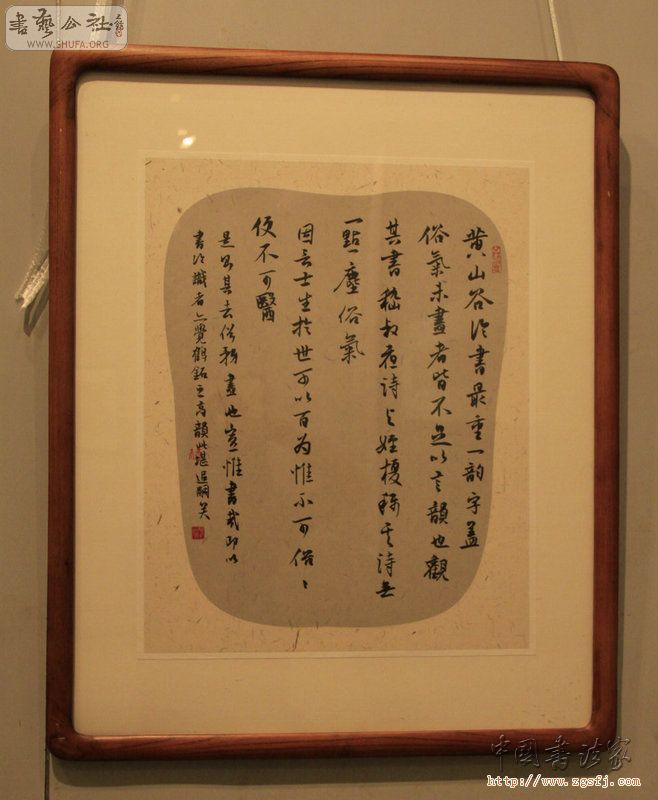 書藝公社
WWW.SHUFA.ORG
黄山谷论書最重一韵字盖
俗氣未盡者皆不足以言韻也觀
其書嵇叔夜詩与姪榎称其詩無
一點塵俗氣
因言士生於世可以百为惟不可俗〻
便不可醫
是則其去俗務盡也豈惟書哉即以
書论識者亦覺鹤銘之高韻此堪追嗣矣
中国書法家
http://www.zgsfj.com